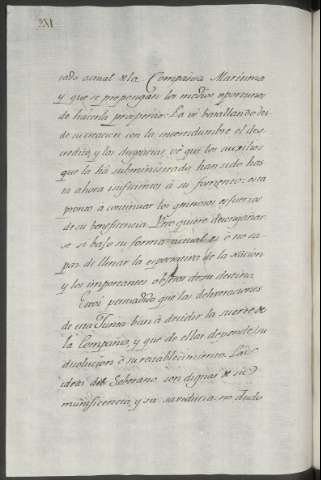 tado actual de la Compañia Maritima
y que se propongan los medios oportunos
de hacerla prosperar. La vé batallando des-
de su creacion con la incertidumbre el des-
credito, y las desgracias: vé que los auxilios
que la há subministrado han sido has-
ta ahora insuficientes á su fomento: está
pronto á continuar los generosos esfuerzos
de su beneficencia. Pero quiere desengañar-
se si bajo su forma actual es ó no ca-
paz de llenar la esperanza de la Nacion
y los importantes objetos de su destino.
Estoi persuadido que las deliberaciones
de esta Junta han á decidir la suerte de
la Compañia, y que de ellas depende su
disolucion ó su restablecimiento. Las
ideas del Soberano son dignas de su
munificencia y su sabiduria: no dudo